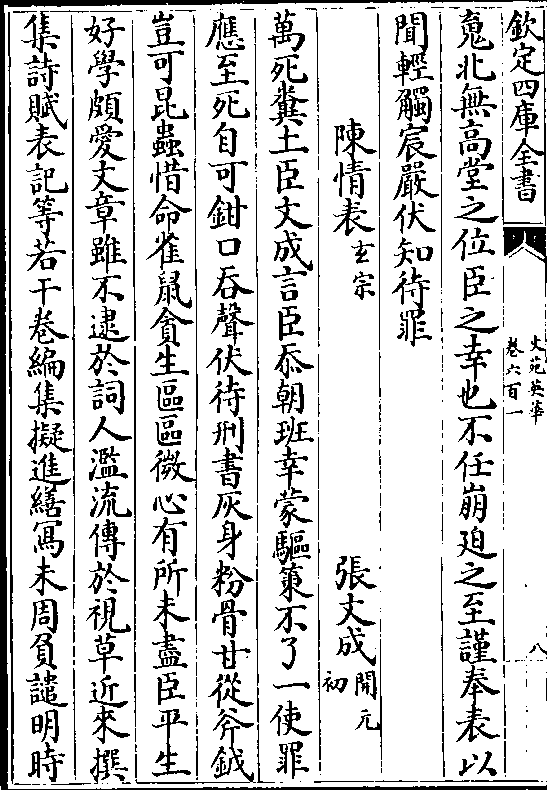 欽定四庫全書
文苑英華
卷六百一
八
嵬北無高堂之位臣之幸也不任崩迫之至謹奉表以
聞輕觸宸嚴伏知待罪
陳情表玄宗 張文成開元初
萬死糞土臣文成言臣忝朝班幸蒙驅策不了一使罪
應至死自可鉗口吞聲伏待刑書灰身粉骨甘從斧鉞
豈可昆蟲惜命雀鼠貪生區區微心有所未盡臣平生
好學頗愛文章雖不逮於詞人濫流傳於視草近來撰
集詩賦表記等若干卷編集擬進繕寫未周負譴明時